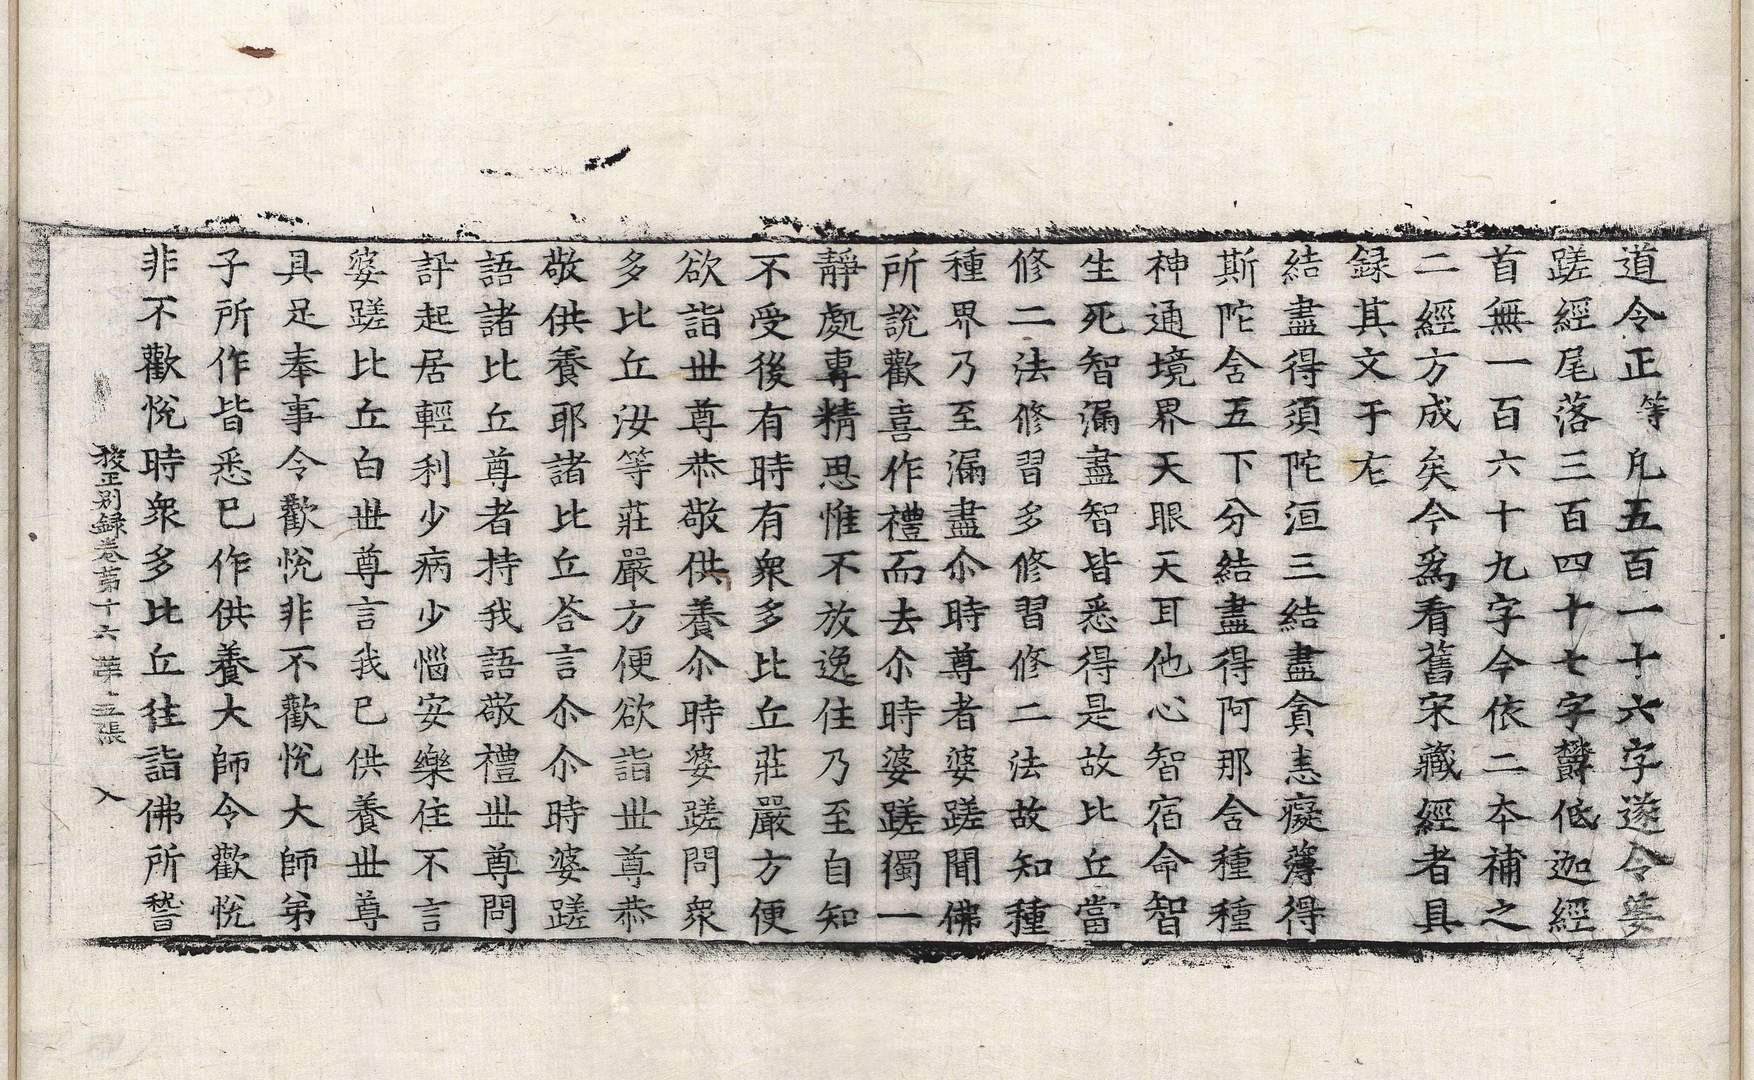 道令正等凡五百一十六字遂令婆
蹉經尾落三百四十七字欝低迦經
首無一百六十九字今依二本補之
二經方成矣今爲看舊宋藏經者具
録其文于左
結盡得須陀洹三結盡貪恚癡薄得
斯陀含五下分結盡得阿那含種種
神通境界天眼天耳他心智宿命智
生死智漏盡智皆悉得是故比丘當
修二法修習多修習修二法故知種
種界乃至漏盡尒時尊者婆蹉聞佛
所説歡喜作禮而去尒時婆蹉獨一
靜處專精思惟不放逸住乃至自知
不受後有時有衆多比丘莊嚴方便
欲詣丗尊恭敬供養尒時婆蹉問衆
多比丘汝等莊嚴方便欲詣丗尊恭
敬供養耶諸比丘荅言尒尒時婆蹉
語諸比丘尊者持我語敬禮丗尊問
訊起居輕利少病少惱安樂住不言
婆蹉比丘白丗尊言我已供養丗尊
具足奉事令歡悅非不歡悅大師弟
子所作皆悉已作供養大師令歡悅
非不歡悅時衆多比丘往詣佛所稽
挍正别録卷第十六 第五張 入